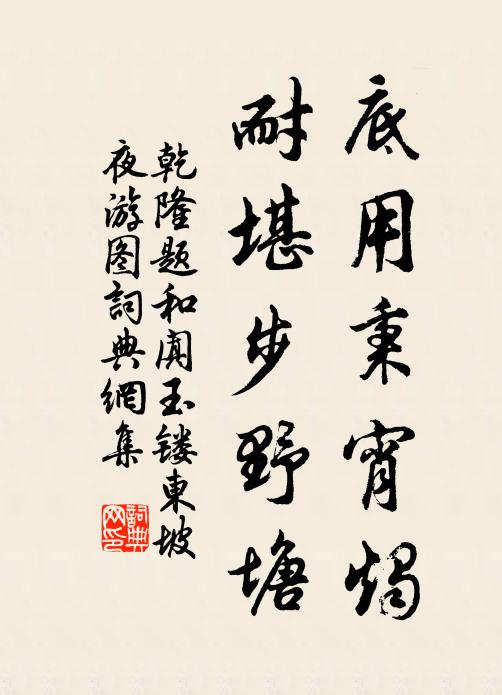 底用秉宵烛
耐堪步野塘
乾隆题和阗玉镂東坡
夜游图詞典網集
詞典网印